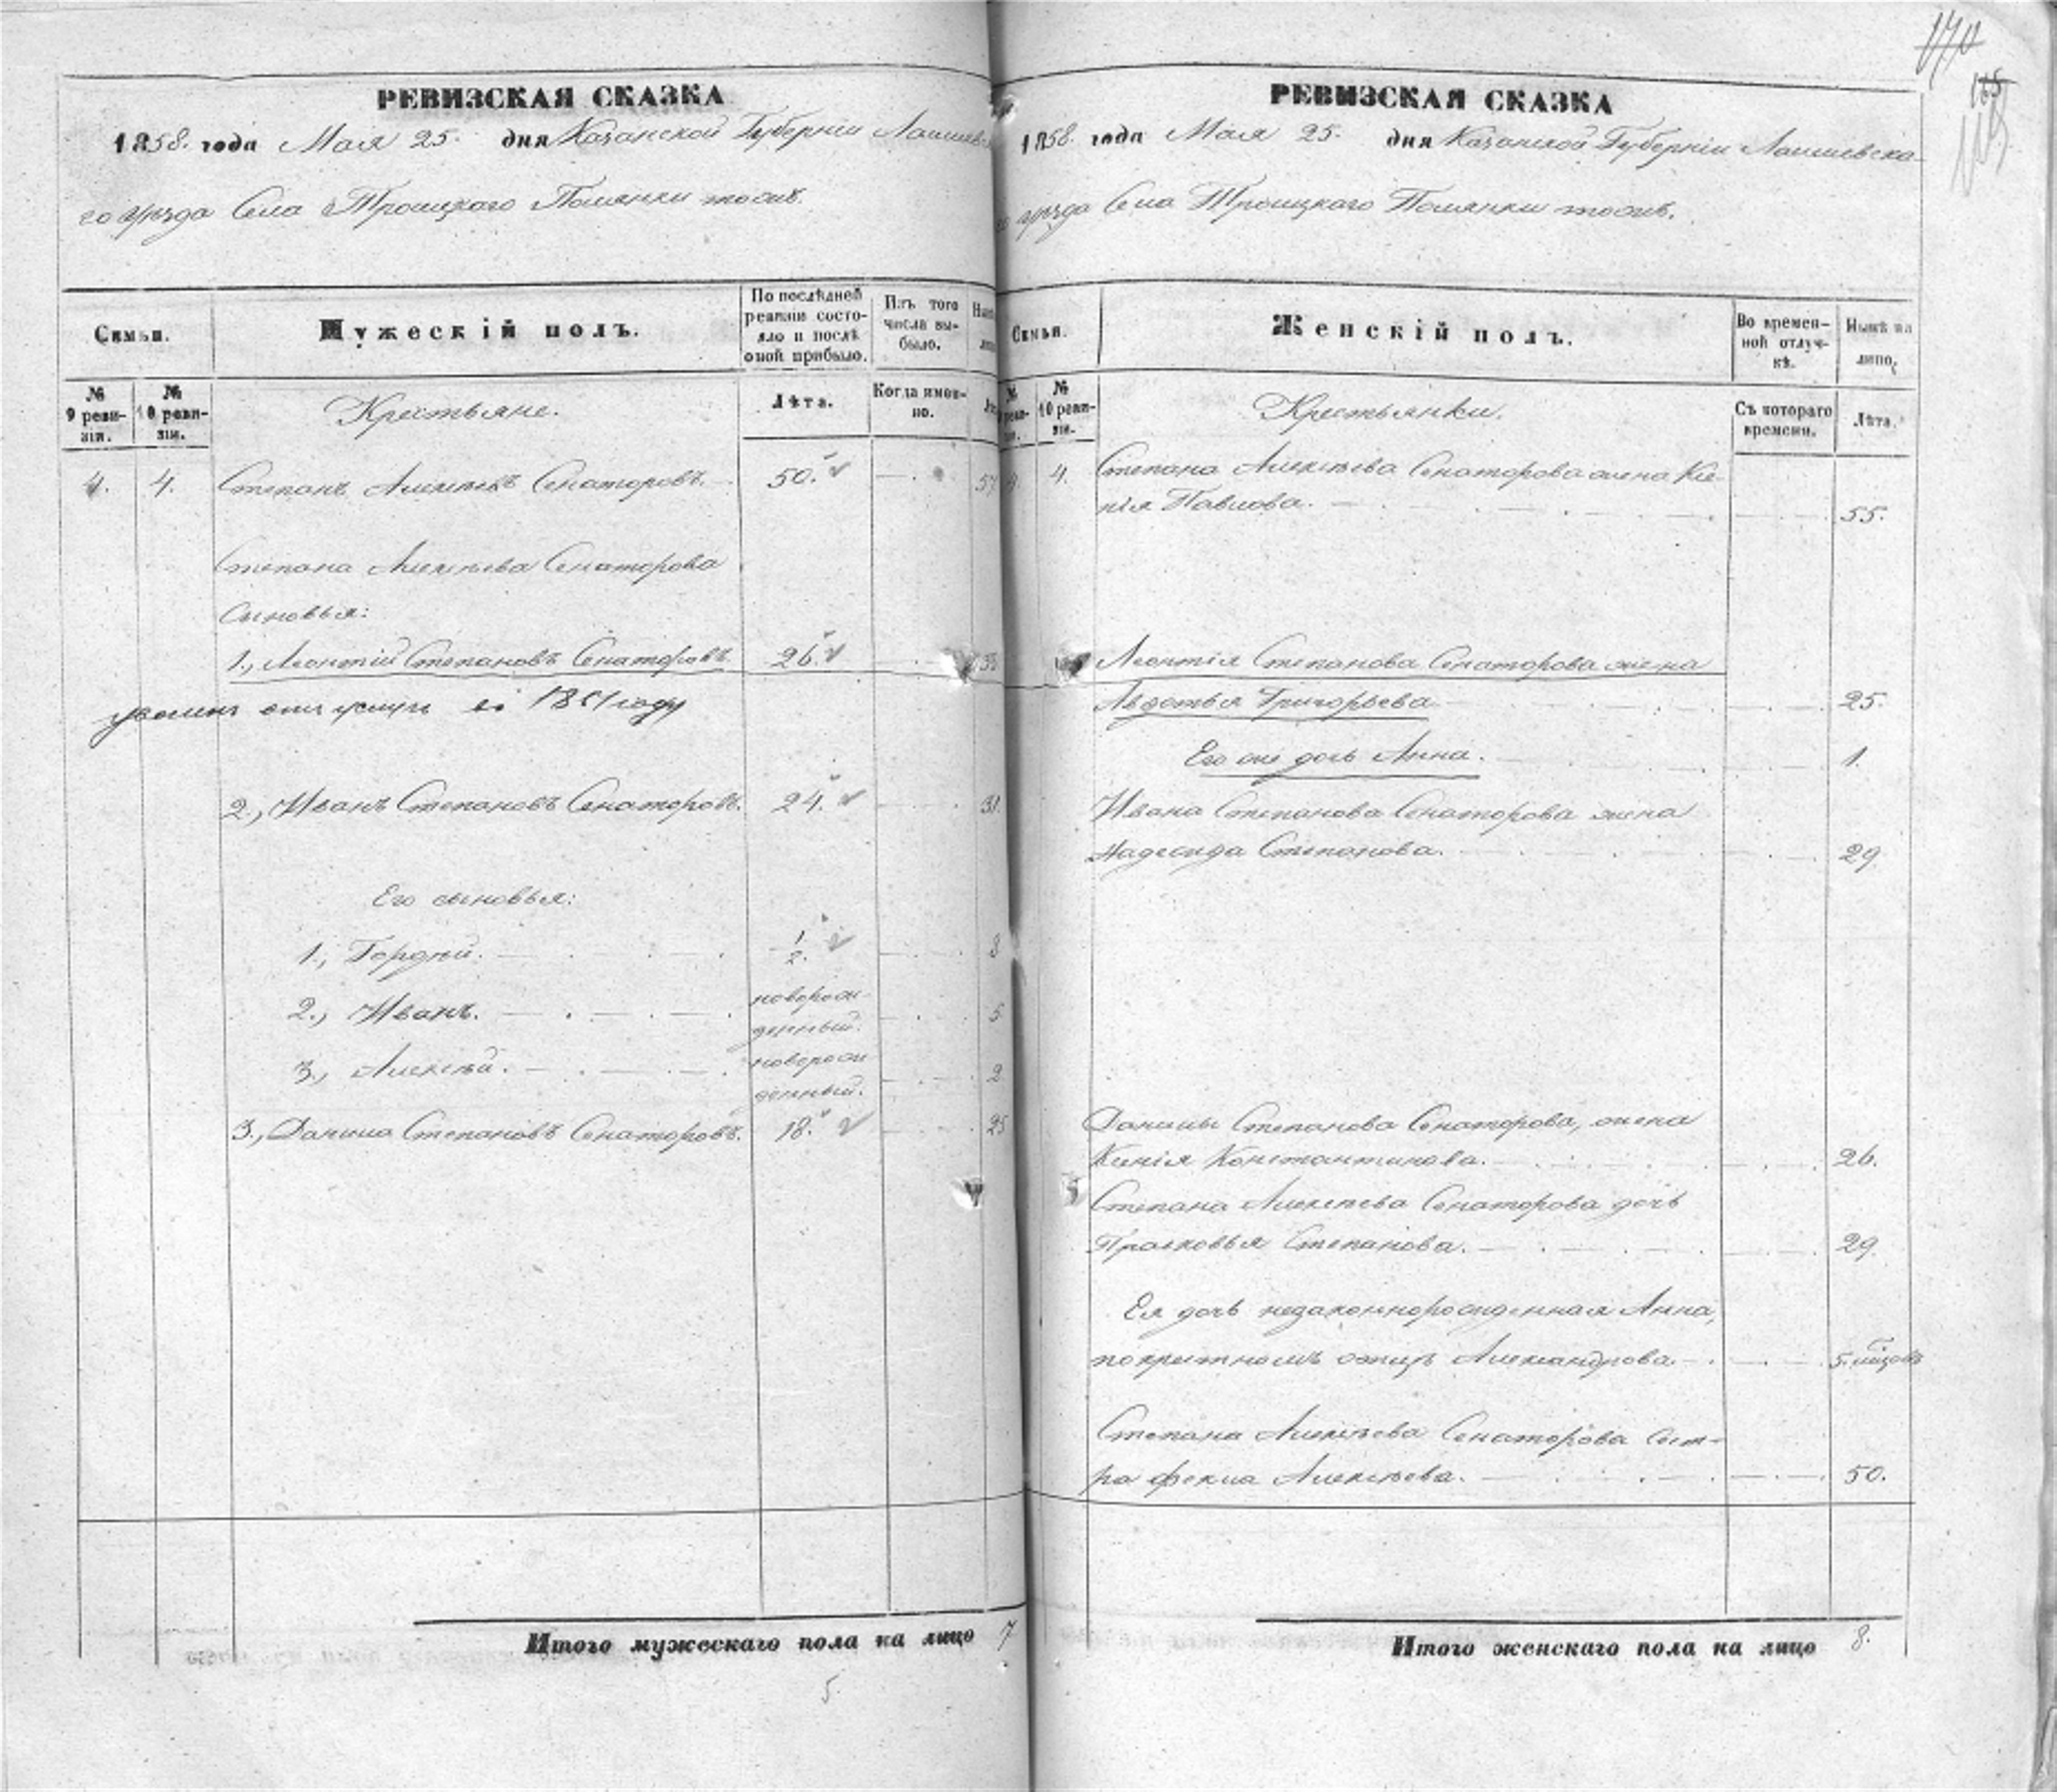 170
165
РЕВИЗСКАЯ СКАЗКА
1858. года Мая 25. дня Казанской Губерніи Лаишевс
го уѣзда Села Троицкаго Полянки тожъ.
Семьи.
Мужескій полъ.
По послѣдней
ревизіи состо-
яло и послѣ
оной прибыло.
Изъ того
числа вы-
было.
№
9 реви-
зіи.
№
10 реви-
зіи.
Крестьяне.
Лѣта.
Когда имен-
но.
4. 4. Степанъ Алексѣевъ Сенаторовъ. 50. 57
Степана Алексѣева Сенаторова
сыновья:
1., Леонтій Степановъ Сенаторовъ. 26. 33
въ 1851 году
2., Иванъ Степановъ Сенаторовъ. 24. 31.
Его сыновья:
1., Гордѣй. 1/2. 8
2., Иванъ. новорож-
денный. 5
3., Алексѣй. новорож
денный. 2
3., Данила Степановъ Сенаторовъ. 18. 25
Итого мужескаго пола на лицо 7
5.
РЕВИЗСКАЯ СКАЗКА
1858. года Мая 25. дня Казанской Губерніи Лаишевска-
го уѣзда Села Троицкаго Полянки тожъ.
Семьи.
Женскій полъ.
Во времен-
ной отлуч-
кѣ.
Нынѣ на
лицо,
№
10 реви-
зіи.
Крестьянки.
Съ котораго
времени.
Лѣта.
4. Степана Алексѣева Сенаторова жена Ксе
нія Павлова. 55.
Леонтія Степанова Сенаторова жена
Авдотья Григорьева 25.
Его же дочь Анна. 1.
Ивана Степанова Сенаторова жена
Надежда Степанова. 29.
Данилы Степанова Сенаторова, жена
Ксенія Константинова. 26.
Степана Алексѣева Сенаторова дочь
Прасковья Степанова. 29.
Ея дочь незаконнорожденная Анна,
по крестномъ отцѣ Александрова. 5. мѣсяцовъ
Степана Алексѣева Сенаторова сест-
ра Фекла Алексѣева. 50.
Итого женскаго пола на лицо 8.